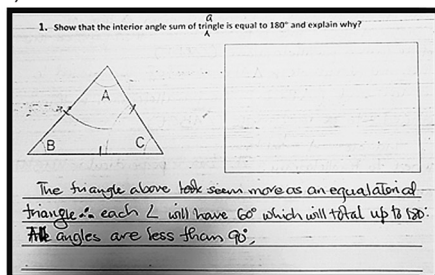 a
1. Show that the interior angle sum of tringle is equal to 180° and explain why?
A
B
C
The triangle above look seem more as an equalaterial
triangle ∴ each ∠ will have 60° which will total up to 180.
All angles are less than 90°,